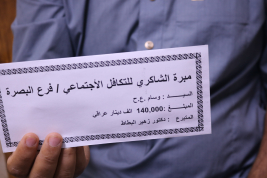 مبرة الشاكري للتكافل الأجتماعي / فرع البصرة
السيد : وسام ع.ح
المبلغ : 140,000 الف دينار عراقي
المتبرع : دكتور زهير البطاط